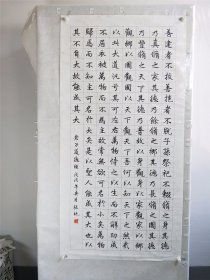 善建者不拔善抱者不脱子孫祭祀不輟脩之身其德
乃真脩之家其德有餘脩之鄉其德乃長脩之國其德
乃豐脩之天下其德乃普以身觀身以家觀家以鄉
觀鄉以國觀國以天下觀天下吾何以知天下之然哉
以此大道汎兮其可左右萬物恃之以生而不辭功成
不居衣被萬物而不為主可名於小矣萬物
歸焉而不知主可名於大矣是以聖人能成其大也以
其不自大故能成其大
老子道德經 戊戌年